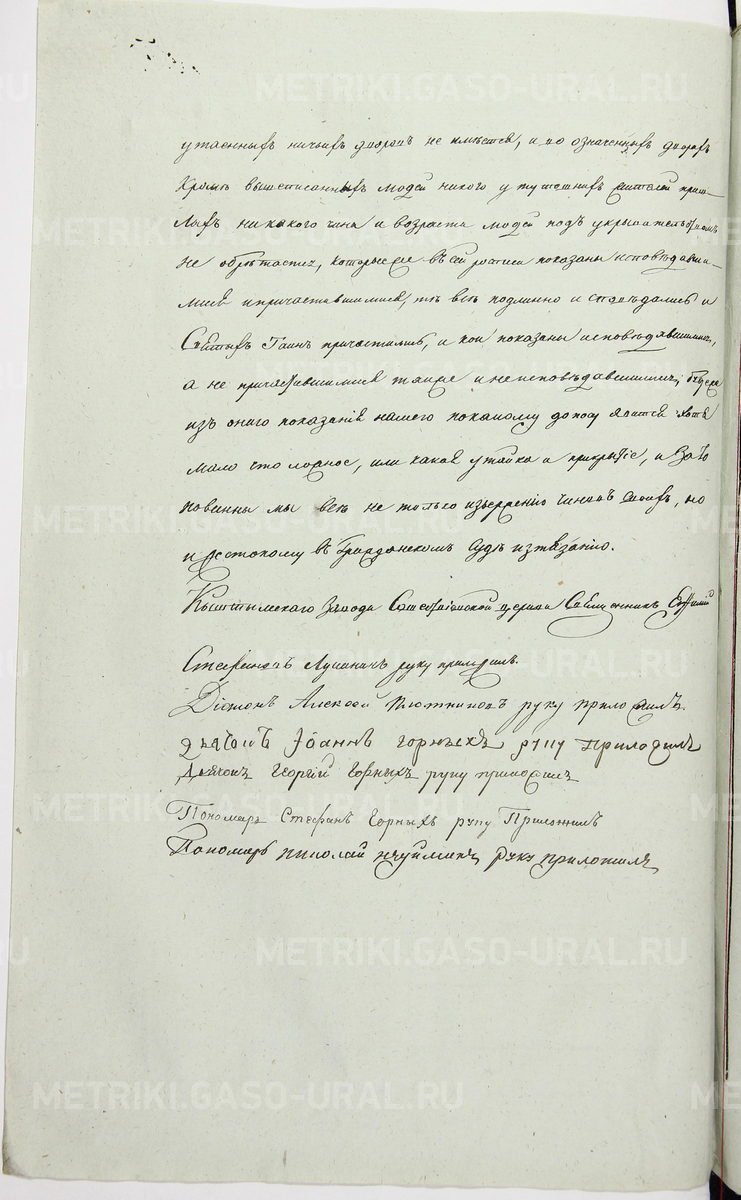 METRIKI.GASO-URAL.RU
утаенныхъ ничьихъ дворовъ не имѣется, и во означенныхъ дворѣхъ
кромѣ вышеписанныхъ людей никого у тутошнихъ жителей приш-
лыхъ никакого чина и возраста людей подъ укрывательствомъ
не обрѣтается, которые же въ сей росписи показаны исповѣдавши-
мися и причастившимися, тѣ всѣ подлинно исповѣдались и
Святыхъ Таинъ причастились, и кои показаны исповѣдавшимися,
а не причастившимися такъже и неисповѣдавшимися, буде же
изъ онаго показанія нашего по какому доносу явится хотя
мало что ложное, или какая утайка и прикрытіе, и за то
повинны мы всѣ не только изверженію чиновъ своихъ, но
и жестокому въ Гражданскомъ судѣ истязанію.
Кыштымскаго Завода церкви Священникъ Евѳимій
Стефановъ руку приложилъ.
Діаконъ Алексей Плотниковъ руку приложилъ.
дьячокъ Іоаннъ горныхъ руку приложилъ
Дьячокъ Георгій Горныхъ руку приложилъ
Пономарь Стефанъ Горныхъ руку Приложилъ
Пономарь николай руку приложилъ